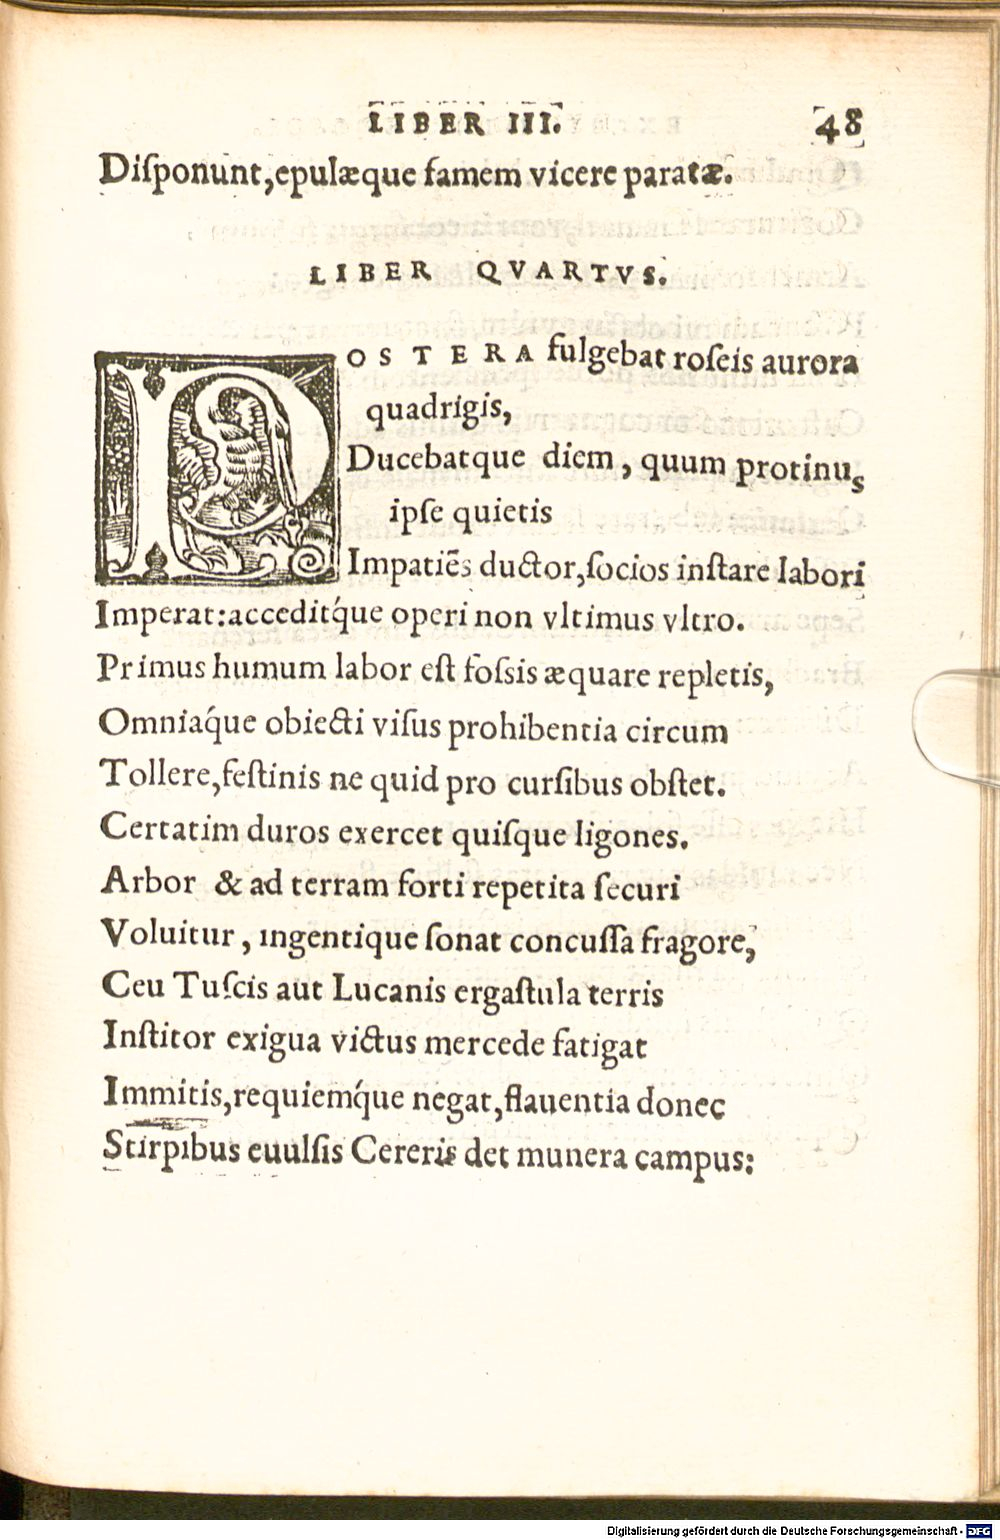 LIBER III. 48
Diſponunt,epulæque famem vicere paratæ.
LIBER QVARTVS.
POSTERA fulgebat roſeis aurora
quadrigis,
Ducebatque diem, quum protinus
ipſe quietis
Impatiẽs ductor,ſocios inſtare labori
Imperat:acceditq́ue operi non vltimus vltro.
Primus humum labor eſt foſsis æquare repletis,
Omniaq́ue obiecti viſus prohibentia circum
Tollere,feſtinis ne quid pro curſibus obſtet.
Certatim duros exercet quiſque ligones.
Arbor & ad terram forti repetita ſecuri
Voluitur, ingentique ſonat concuſſa fragore,
Ceu Tuſcis aut Lucanis ergaſtula terris
Inſtitor exigua victus mercede fatigat
Immitis,requiemq́ue negat,flauentia donec
Stirpibus euulſis Cereris det munera campus:
Digitalisierung gefördert durch die Deutsche Forschungsgemeinschaft - DFG